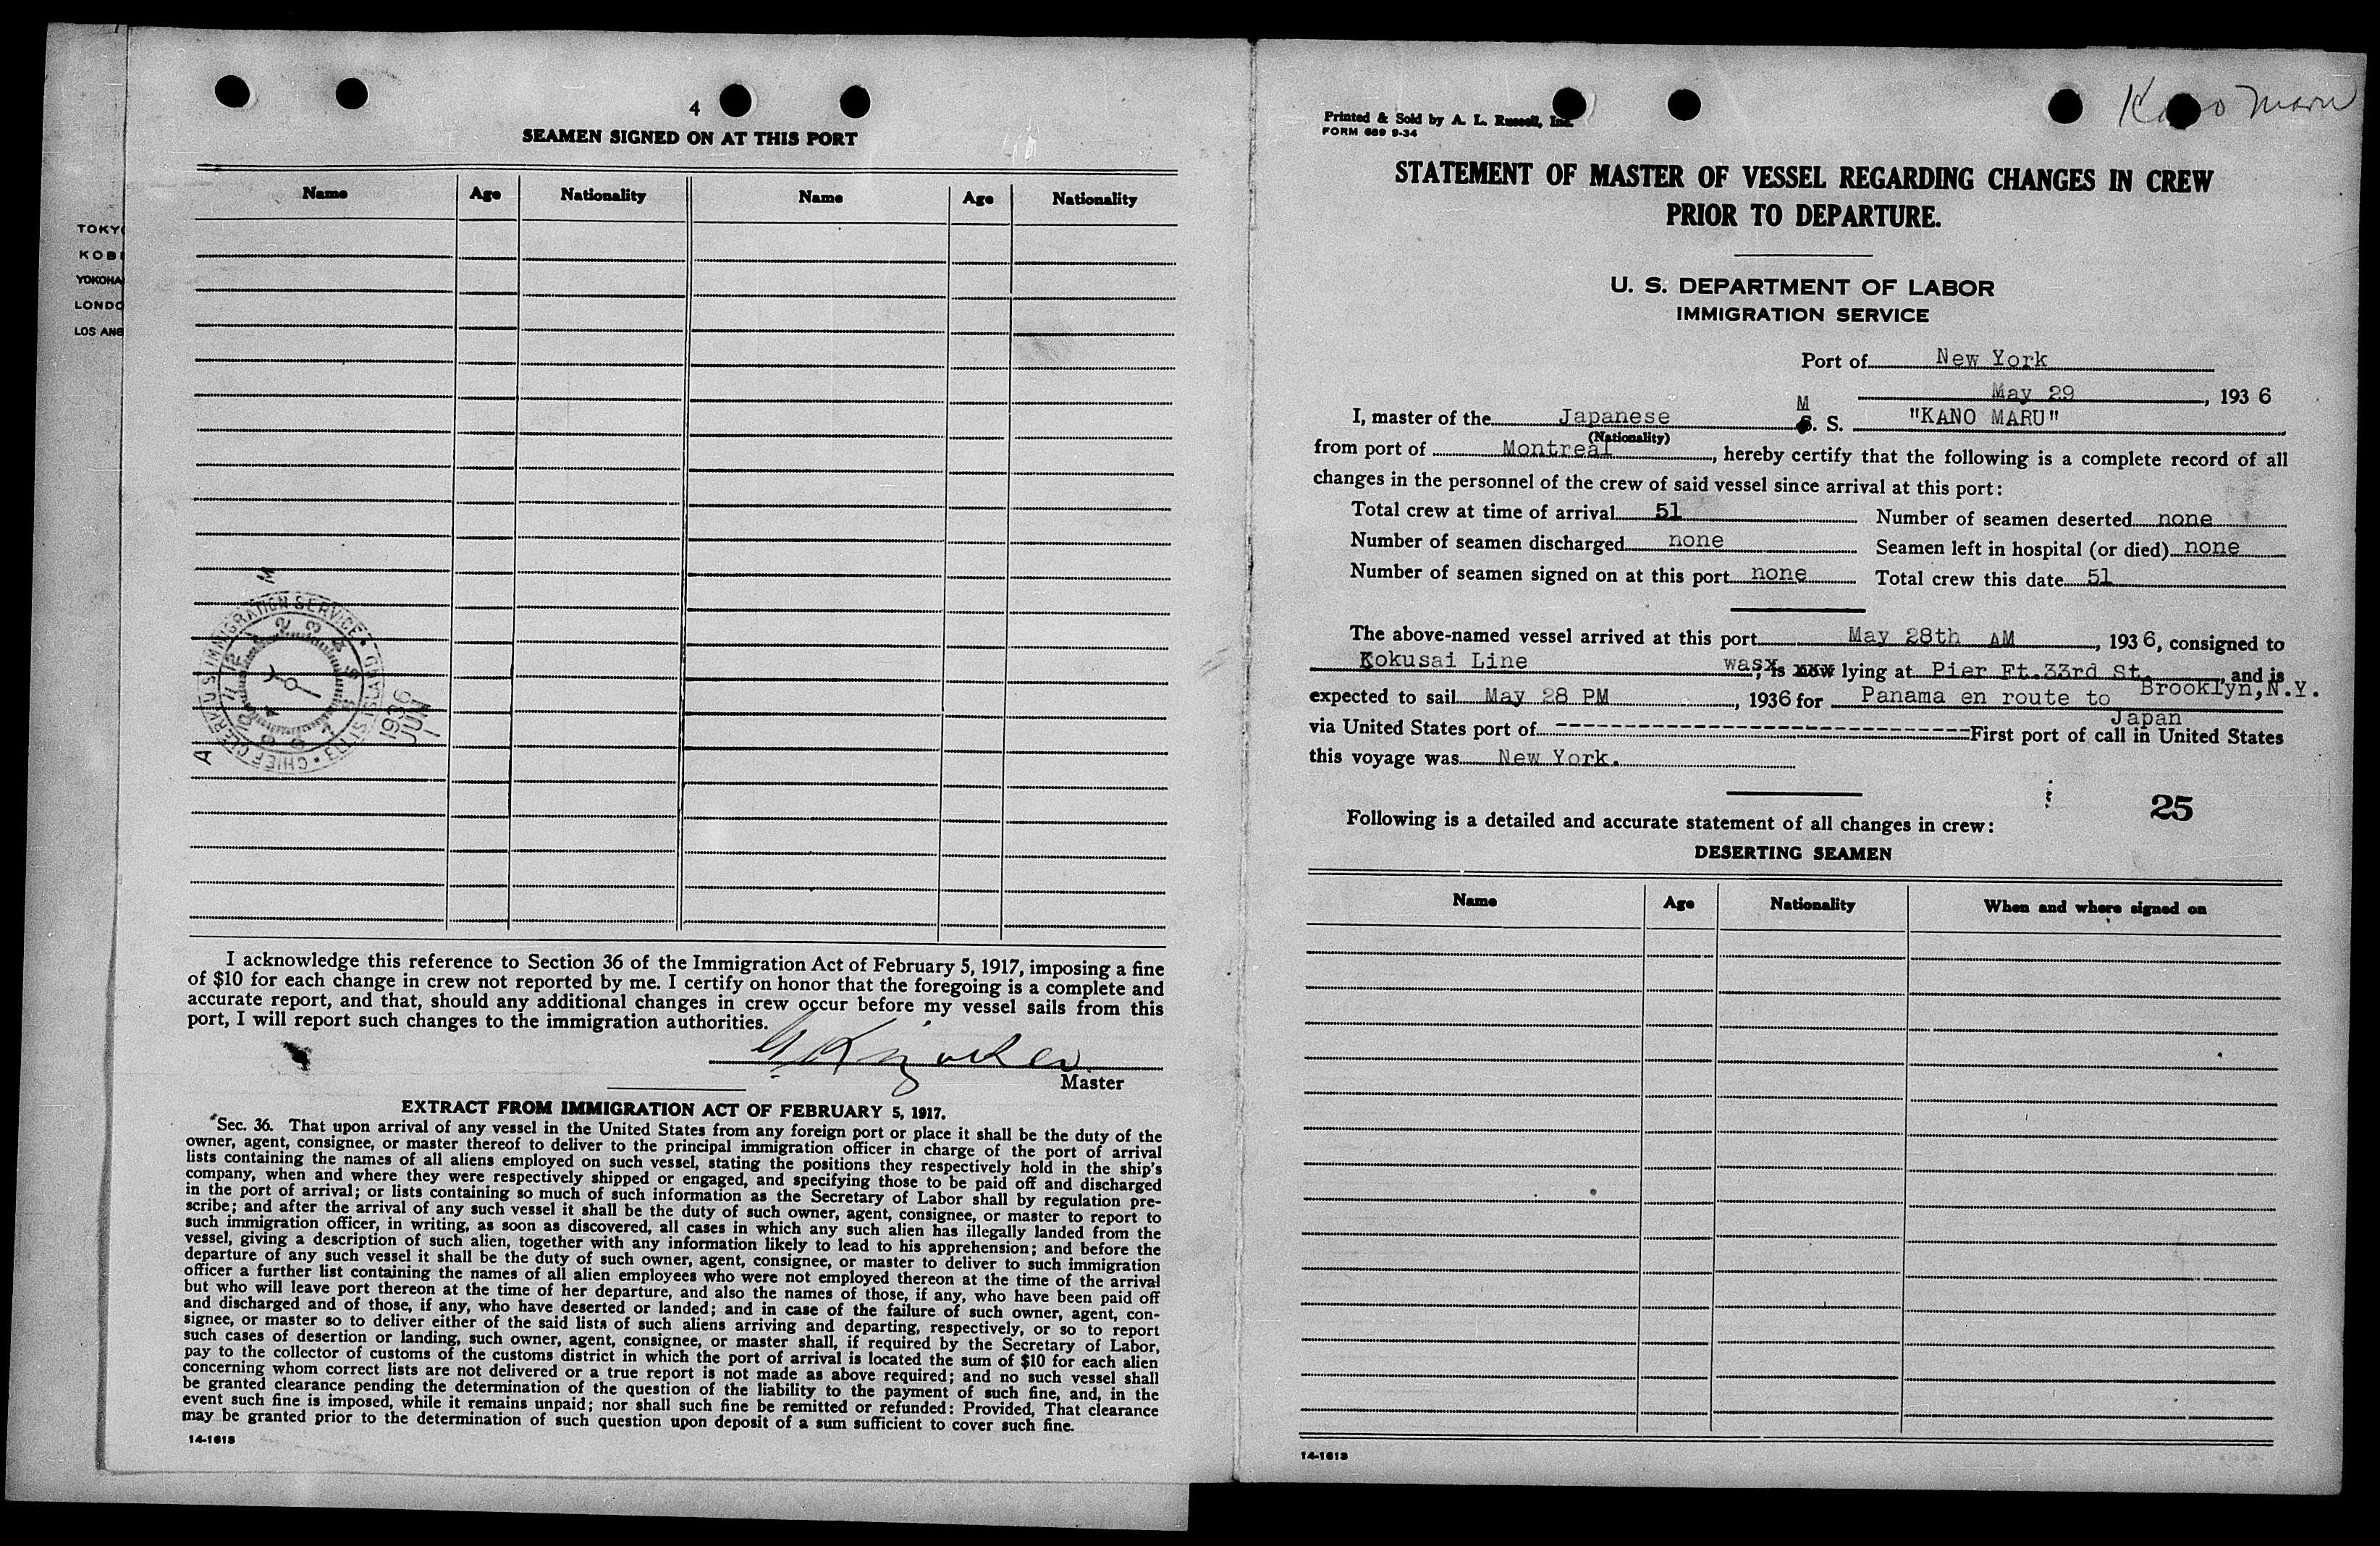 TOKYO
KOBE
YOKOHA
LONDO
LOS ANG
4
SEAMEN SIGNED ON AT THIS PORT
Name Age Nationality Name Age Nationality
M
CLERK U.S. IMMIGRATION SERVICE • ELLIS ISLAND • CHIEF
12 1 2 3 4 5 6 7 8 9 10 11
1936
JUN
1
A
I acknowledge this reference to Section 36 of the Immigration Act of February 5, 1917, imposing a fine
of $10 for each change in crew not reported by me. I certify on honor that the foregoing is a complete and
accurate report, and that, should any additional changes in crew occur before my vessel sails from this
port, I will report such changes to the immigration authorities.
Master
EXTRACT FROM IMMIGRATION ACT OF FEBRUARY 5, 1917.
Sec. 36. That upon arrival of any vessel in the United States from any foreign port or place it shall be the duty of the
owner, agent, consignee, or master thereof to deliver to the principal immigration officer in charge of the port of arrival
lists containing the names of all aliens employed on such vessel, stating the positions they respectively hold in the ship's
company, when and where they were respectively shipped or engaged, and specifying those to be paid off and discharged
in the port of arrival; or lists containing so much of such information as the Secretary of Labor shall by regulation pre-
scribe; and after the arrival of any such vessel it shall be the duty of such owner, agent, consignee, or master to report to
such immigration officer, in writing, as soon as discovered, all cases in which any such alien has illegally landed from the
vessel, giving a description of such alien, together with any information likely to lead to his apprehension; and before the
departure of any such vessel it shall be the duty of such owner, agent, consignee, or master to deliver to such immigration
officer a further list containing the names of all alien employees who were not employed thereon at the time of the arrival
but who will leave port thereon at the time of her departure, and also the names of those, if any, who have been paid off
and discharged and of those, if any, who have deserted or landed; and in case of the failure of such owner, agent, con-
signee, or master so to deliver either of the said lists of such aliens arriving and departing, respectively, or so to report
such cases of desertion or landing, such owner, agent, consignee, or master shall, if required by the Secretary of Labor,
pay to the collector of customs of the customs district in which the port of arrival is located the sum of $10 for each alien
concerning whom correct lists are not delivered or a true report is not made as above required; and no such vessel shall
be granted clearance pending the determination of the question of the liability to the payment of such fine, and, in the
event such fine is imposed, while it remains unpaid; nor shall such fine be remitted or refunded: Provided, That clearance
may be granted prior to the determination of such question upon deposit of a sum sufficient to cover such fine.
14-1613
Kano Maru
Printed & Sold by A. L. Russell, Inc.
FORM 689 9-34
STATEMENT OF MASTER OF VESSEL REGARDING CHANGES IN CREW
PRIOR TO DEPARTURE.
U. S. DEPARTMENT OF LABOR
IMMIGRATION SERVICE
Port of New York
May 29, 1936
I, master of the Japanese M S. S. "KANO MARU"
(Nationality)
from port of Montreal, hereby certify that the following is a complete record of all
changes in the personnel of the crew of said vessel since arrival at this port:
Total crew at time of arrival 51 Number of seamen deserted none
Number of seamen discharged none Seamen left in hospital (or died) none
Number of seamen signed on at this port none Total crew this date 51
The above-named vessel arrived at this port May 28th AM, 1936, consigned to
Kokusai Line wasx, is now lying at Pier Ft. 33rd St. and is
Brooklyn, N.Y.
expected to sail May 28 PM, 1936 for Panama en route to
Japan
via United States port of ---------- First port of call in United States
this voyage was New York.
25
Following is a detailed and accurate statement of all changes in crew:
DESERTING SEAMEN
Name Age Nationality When and where signed on
14-1613